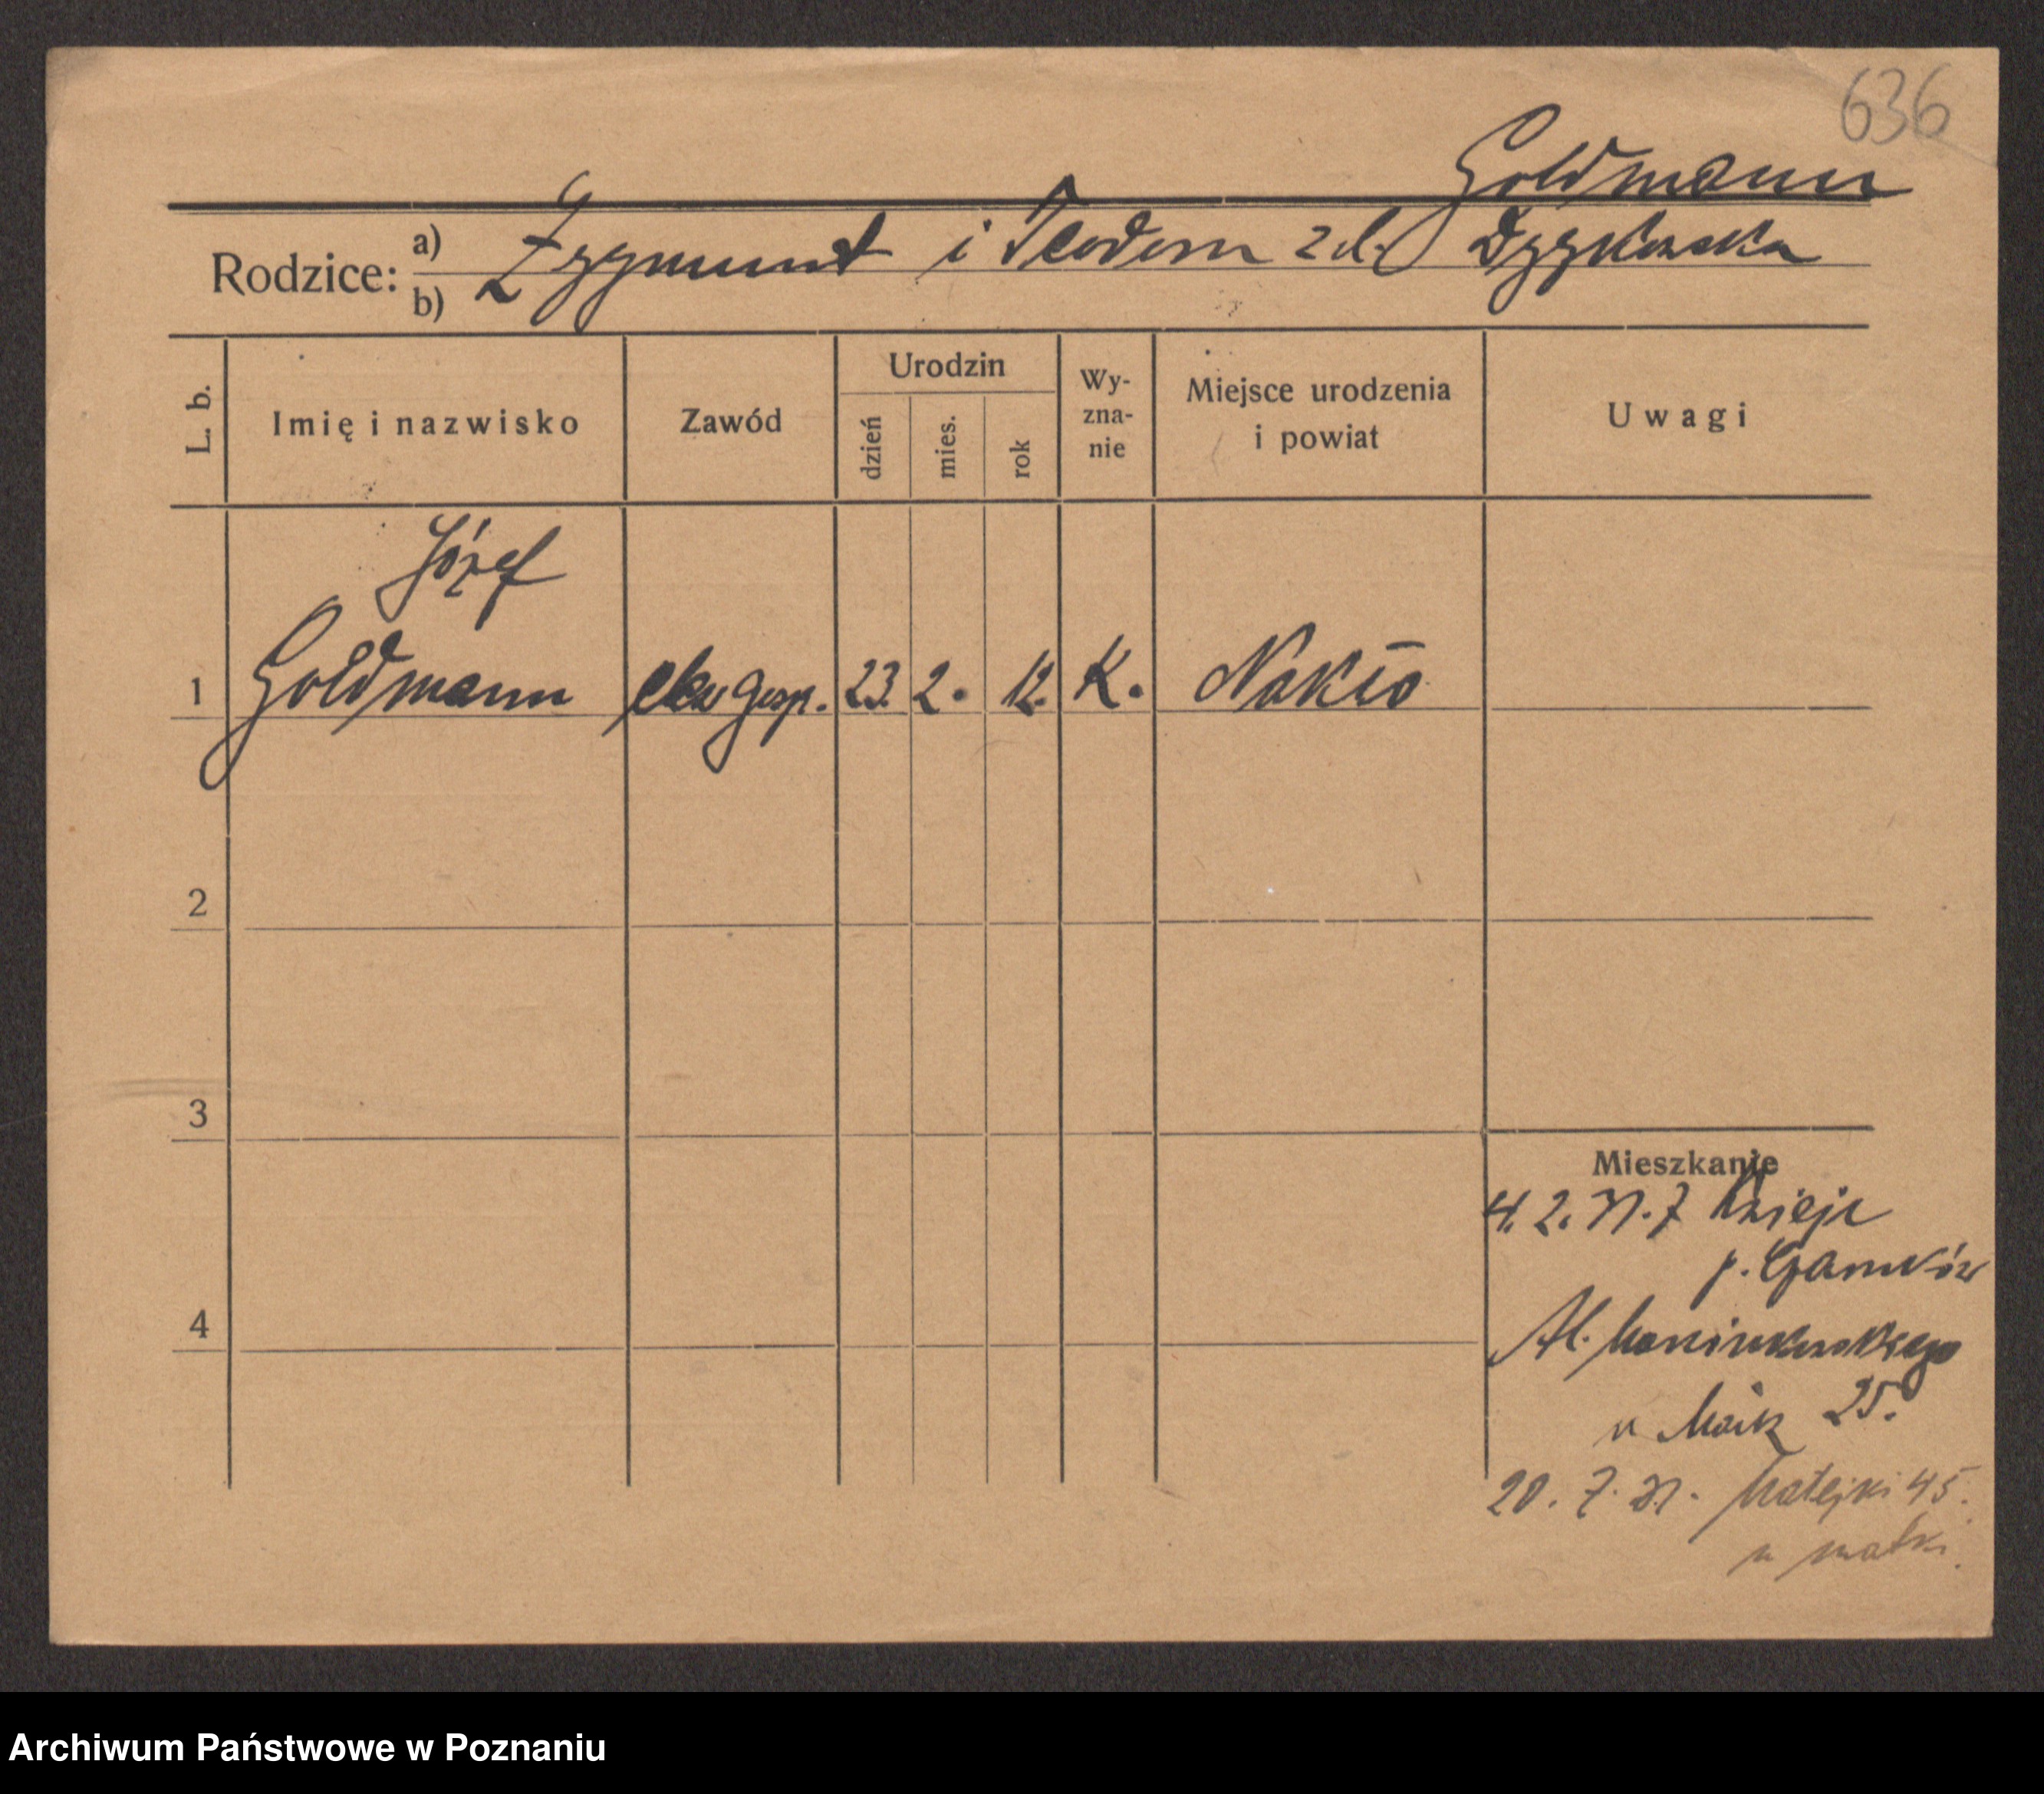 636
Goldmann
Rodzice: a) b) Zygmunt i Teodora z d.
L. b.
Imię i nazwisko
Zawód
Urodzin
dzień
mies.
rok
Wy-
zna-
nie
Miejsce urodzenia
i powiat
Uwagi
Józef
1 Goldmann gosp. 23. 2. 12. K. Nakło
2
3
4
Mieszkanie
4. 2. 31. z
p. Czarnków
Al. Marcinkowskiego
u 25.
20. 7. 31. Matejki 45.
u matki.
Archiwum Państwowe w Poznaniu